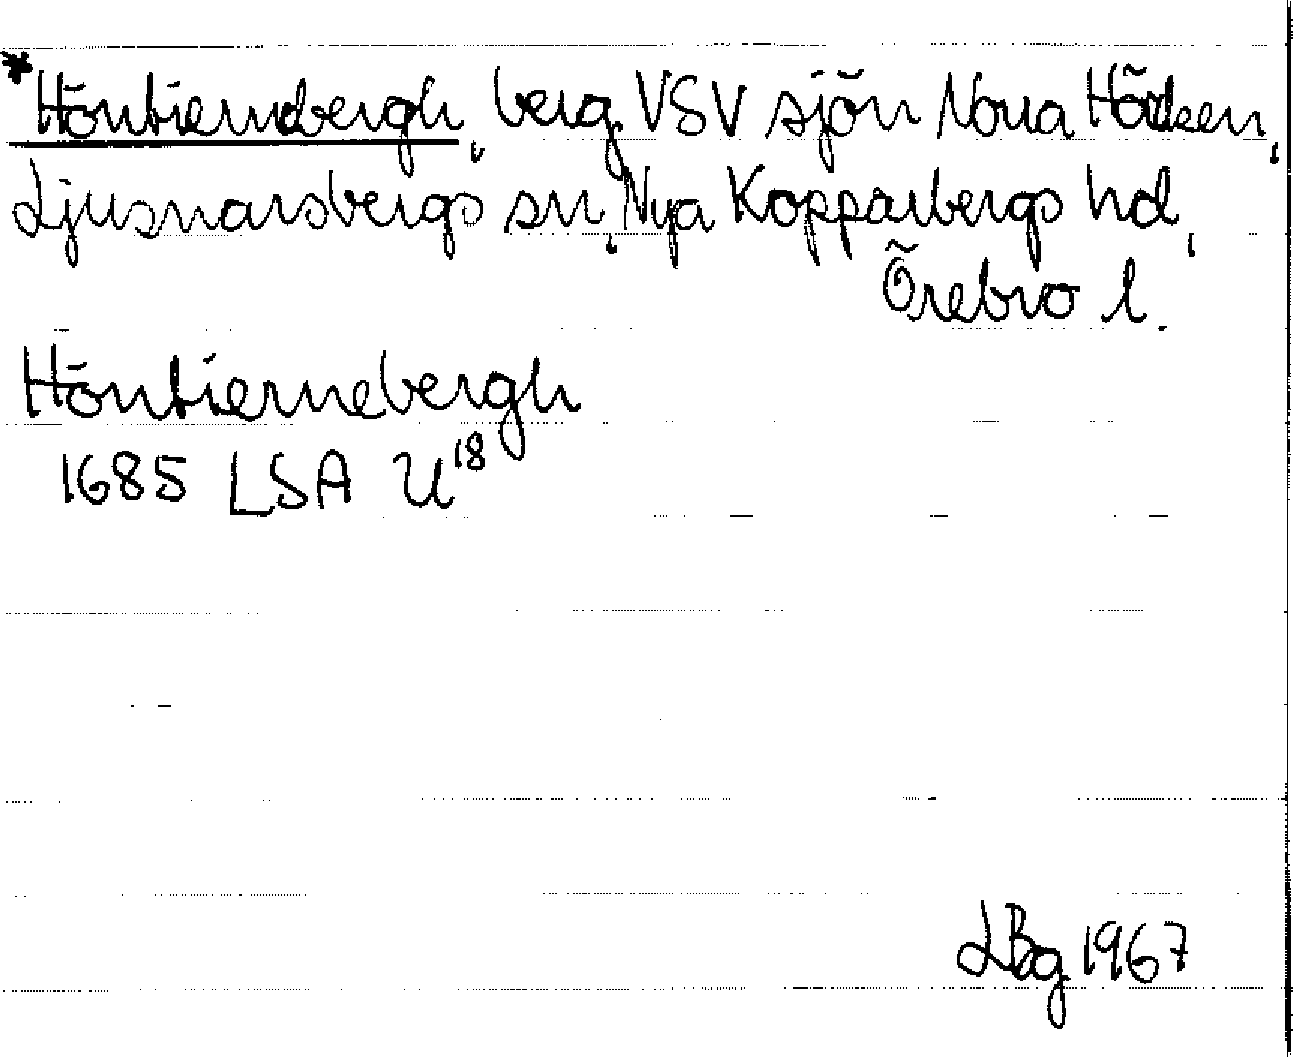 *Höntiernebergh, berg VSV sjön Norra Hörken,
Ljusnarsbergs sn, Nya Kopparbergs hd,
Örebro l.
Höntiernebergh
1685 LSA U18
LBg 1967